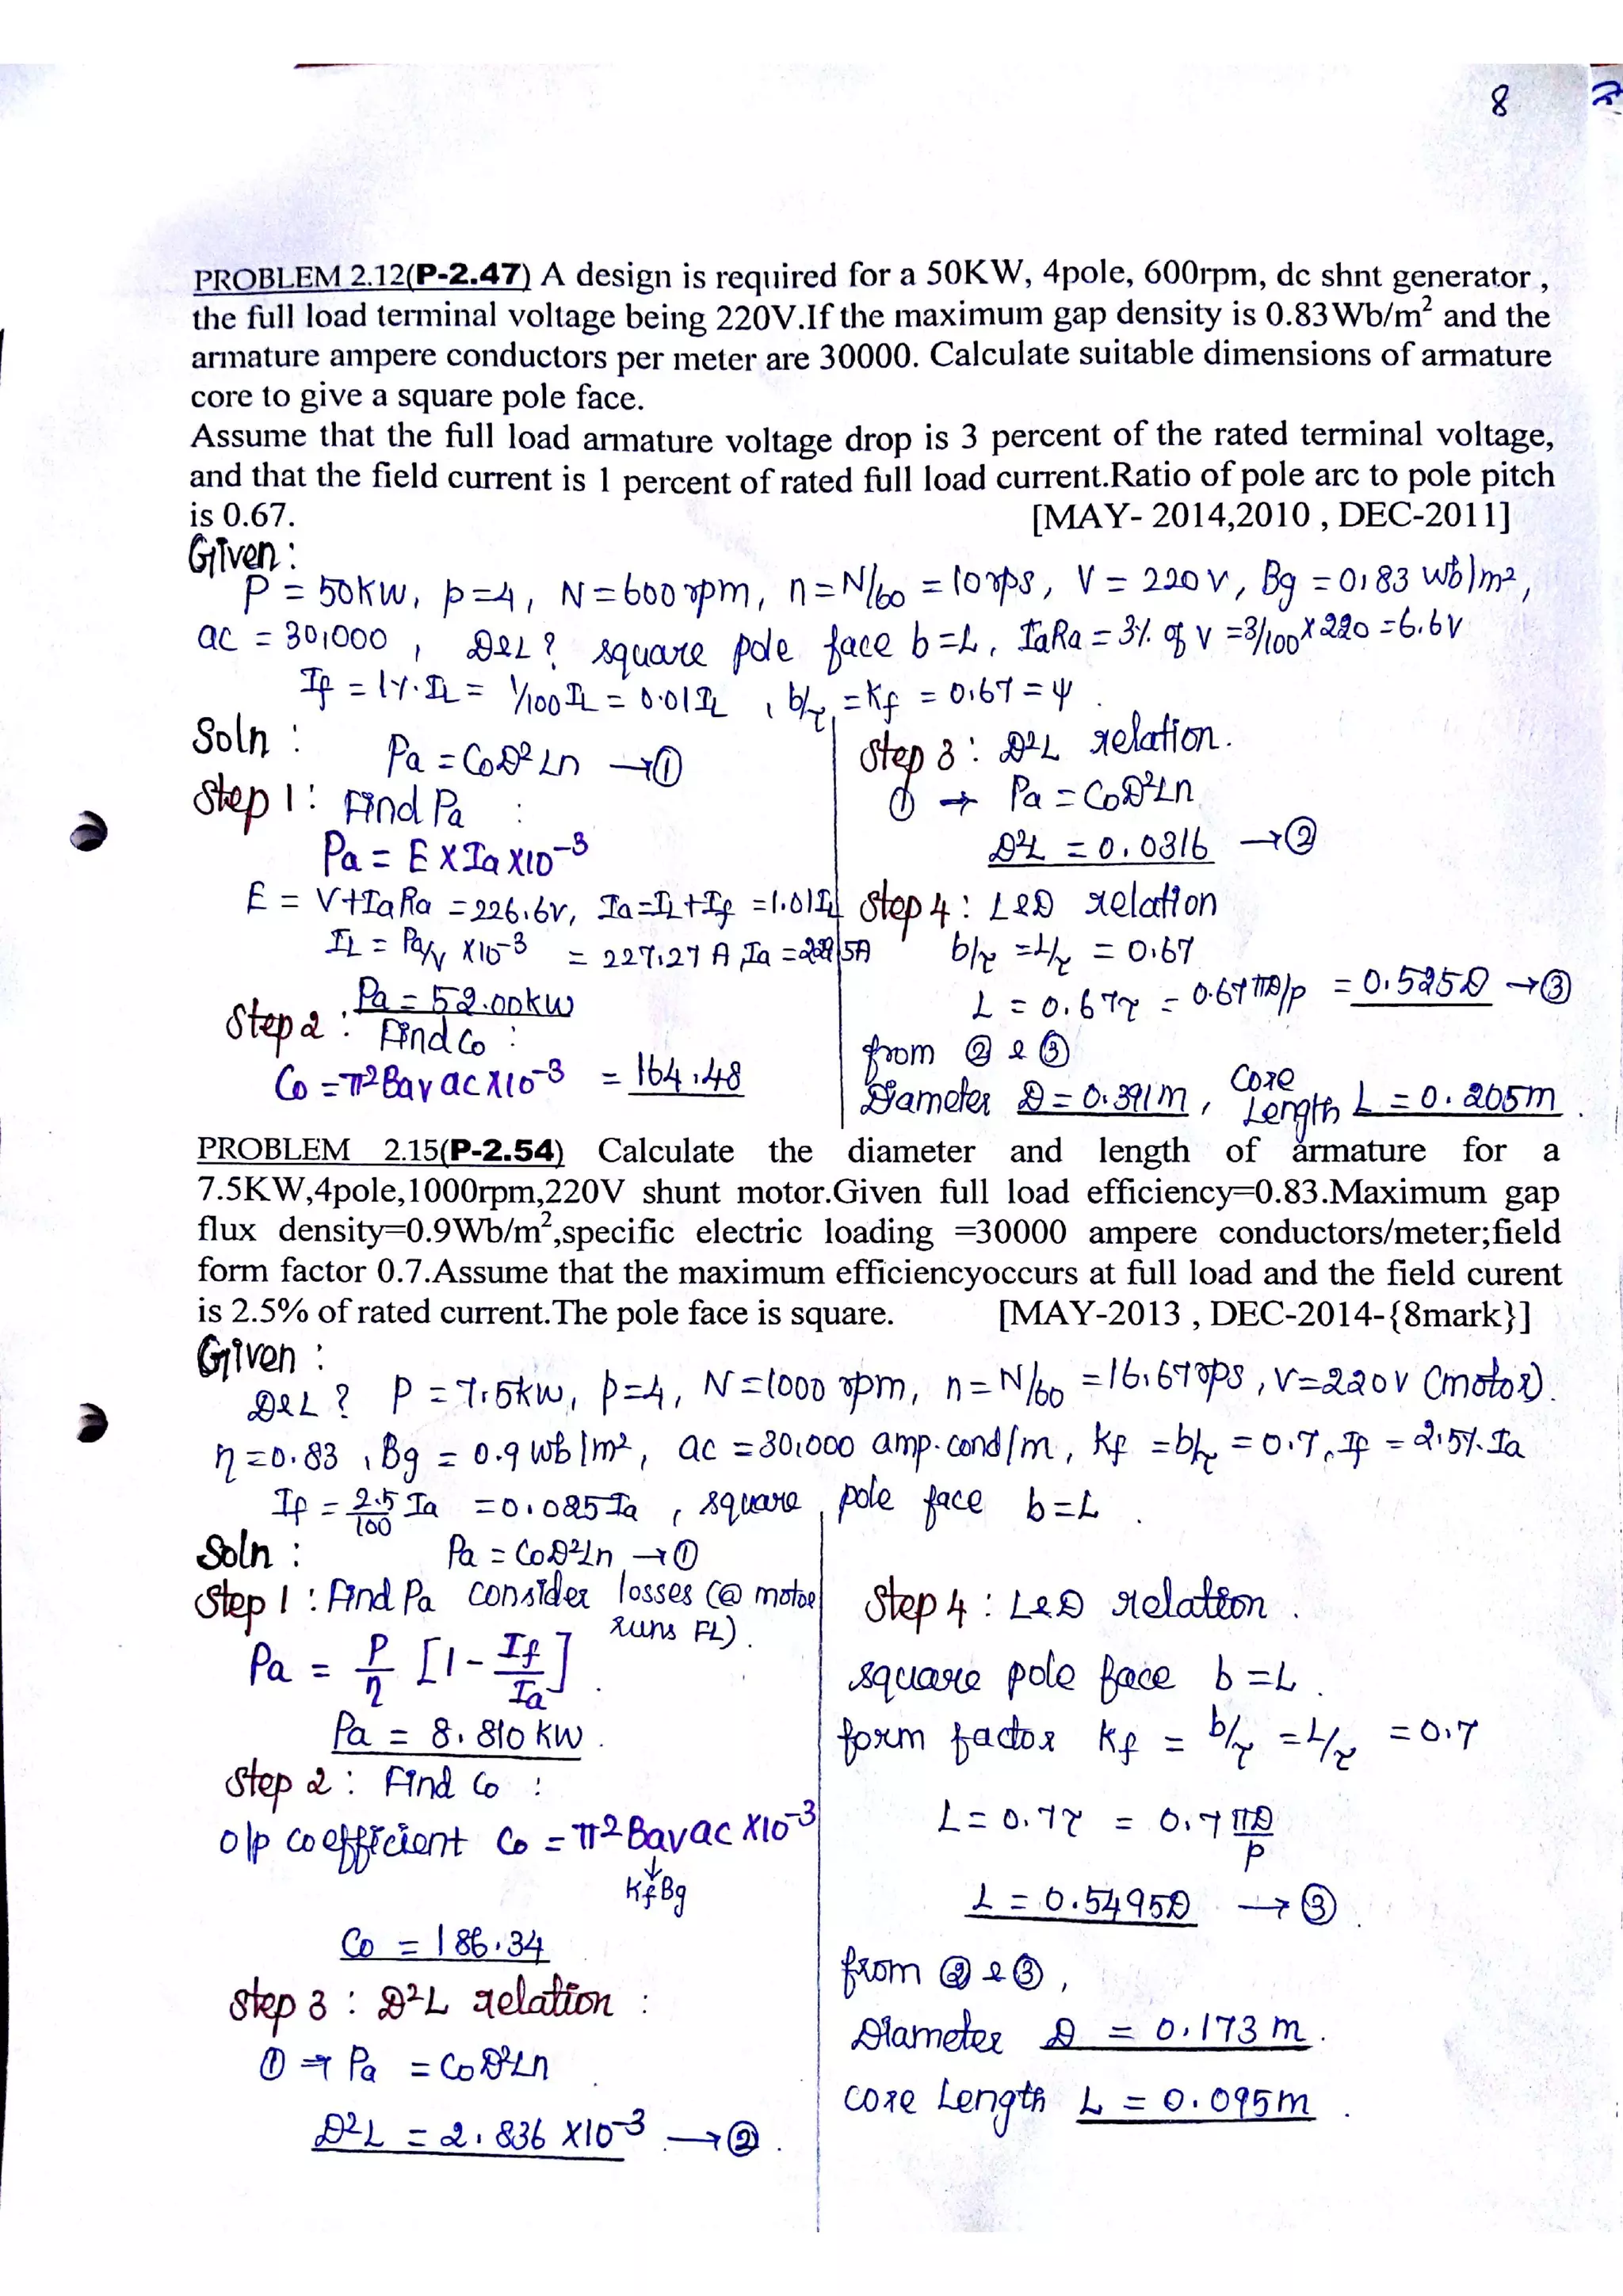 8
PROBLEM 2.12(P-2.47) A design is required for a 50KW, 4pole, 600rpm, dc shnt generator ,
the full load terminal voltage being 220V.If the maximum gap density is 0.83Wb/m² and the
armature ampere conductors per meter are 30000. Calculate suitable dimensions of armature
core to give a square pole face.
Assume that the full load armature voltage drop is 3 percent of the rated terminal voltage,
and that the field current is 1 percent of rated full load current.Ratio of pole arc to pole pitch
is 0.67. [MAY- 2014,2010 , DEC-2011]
Given :
P = 50KW, p=4, N=600 rpm, n=N/60 = 10rps, V = 220 V, Bg = 0.83 wb/m²,
ac = 30,000 , D&L ? square pole face b=L, IaRa = 3% of V =3/100 X 220 =6.6V
If = 1%.IL = 1/100 IL = 0.01IL , b/τ = Kf = 0.67 = ψ .
Soln : Pa = CoD²Ln →①
Step 1 : Find Pa :
Pa = E X Ia X10⁻³
E = V+IaRa =226.6V, Ia=IL+If =1.01IL
IL = Pa/V X10⁻³ = 227.27 A Ia =229.5A
Pa = 52.00KW
Step 2 : Find Co :
Co =π²Bav ac X10⁻³ = 164.48
Step 3 : D²L relation.
① → Pa = CoD²Ln
D²L = 0.0316 →②
Step 4 : L&D relation
b/τ =L/τ = 0.67
L = 0.67τ = 0.67πD/p = 0.525D →③
from ② & ③
Diameter D = 0.391m , Core Length L = 0.205m .
PROBLEM 2.15(P-2.54) Calculate the diameter and length of armature for a
7.5KW,4pole,1000rpm,220V shunt motor.Given full load efficiency=0.83.Maximum gap
flux density=0.9Wb/m²,specific electric loading =30000 ampere conductors/meter;field
form factor 0.7.Assume that the maximum efficiencyoccurs at full load and the field curent
is 2.5% of rated current.The pole face is square. [MAY-2013 , DEC-2014-{8mark}]
Given :
D&L ? P = 7.5KW, p=4, N=1000 rpm, n=N/60 =16.67rps ,V=220V (motor).
η=0.83 , Bg = 0.9 wb/m², ac =30,000 amp.cond/m, Kf =b/τ = 0.7, If = 2.5%.Ia
If = 2.5/100 Ia =0.025Ia , square pole face b=L .
Soln : Pa = CoD²Ln →①
Step 1 : Find Pa consider losses (@ motor
runs FL) .
Pa = P/η [1 - If/Ia] .
Pa = 8.810 KW .
Step 2 : Find Co :
o/p coefficient Co = π²Bav ac X10⁻³
↓
KfBg
Co = 186.34
Step 3 : D²L relation :
① → Pa = CoD²Ln
D²L = 2.836 X10⁻³ →② .
Step 4 : L&D relation .
square pole face b=L .
form factor Kf = b/τ =L/τ = 0.7
L = 0.7τ = 0.7 πD/p
L = 0.5495D →③ .
from ② & ③ ,
Diameter D = 0.173 m .
core Length L = 0.095m .